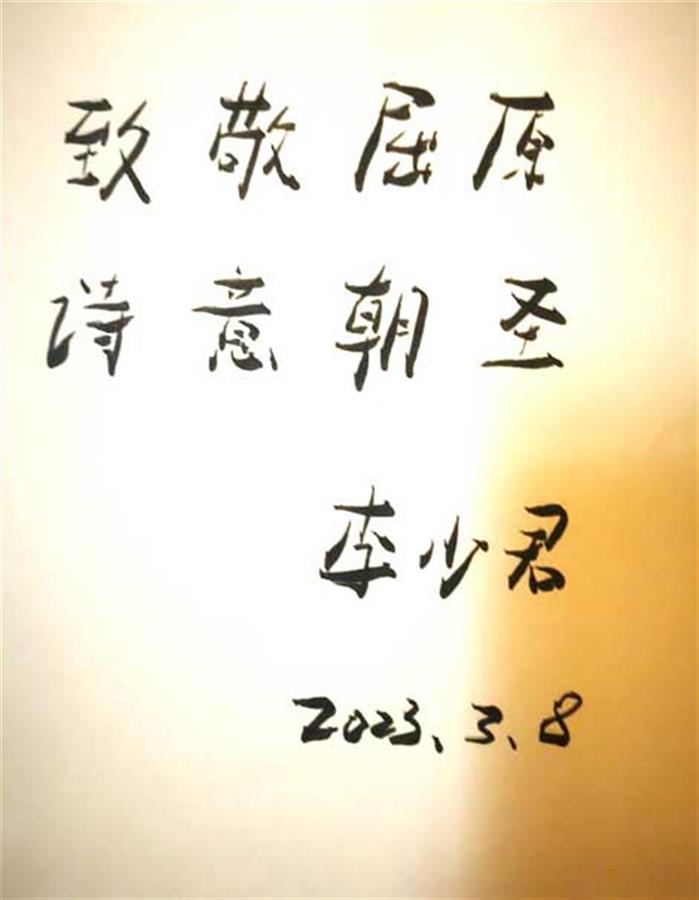 致敬屈原
诗意朝圣
李少君
2023.3.8